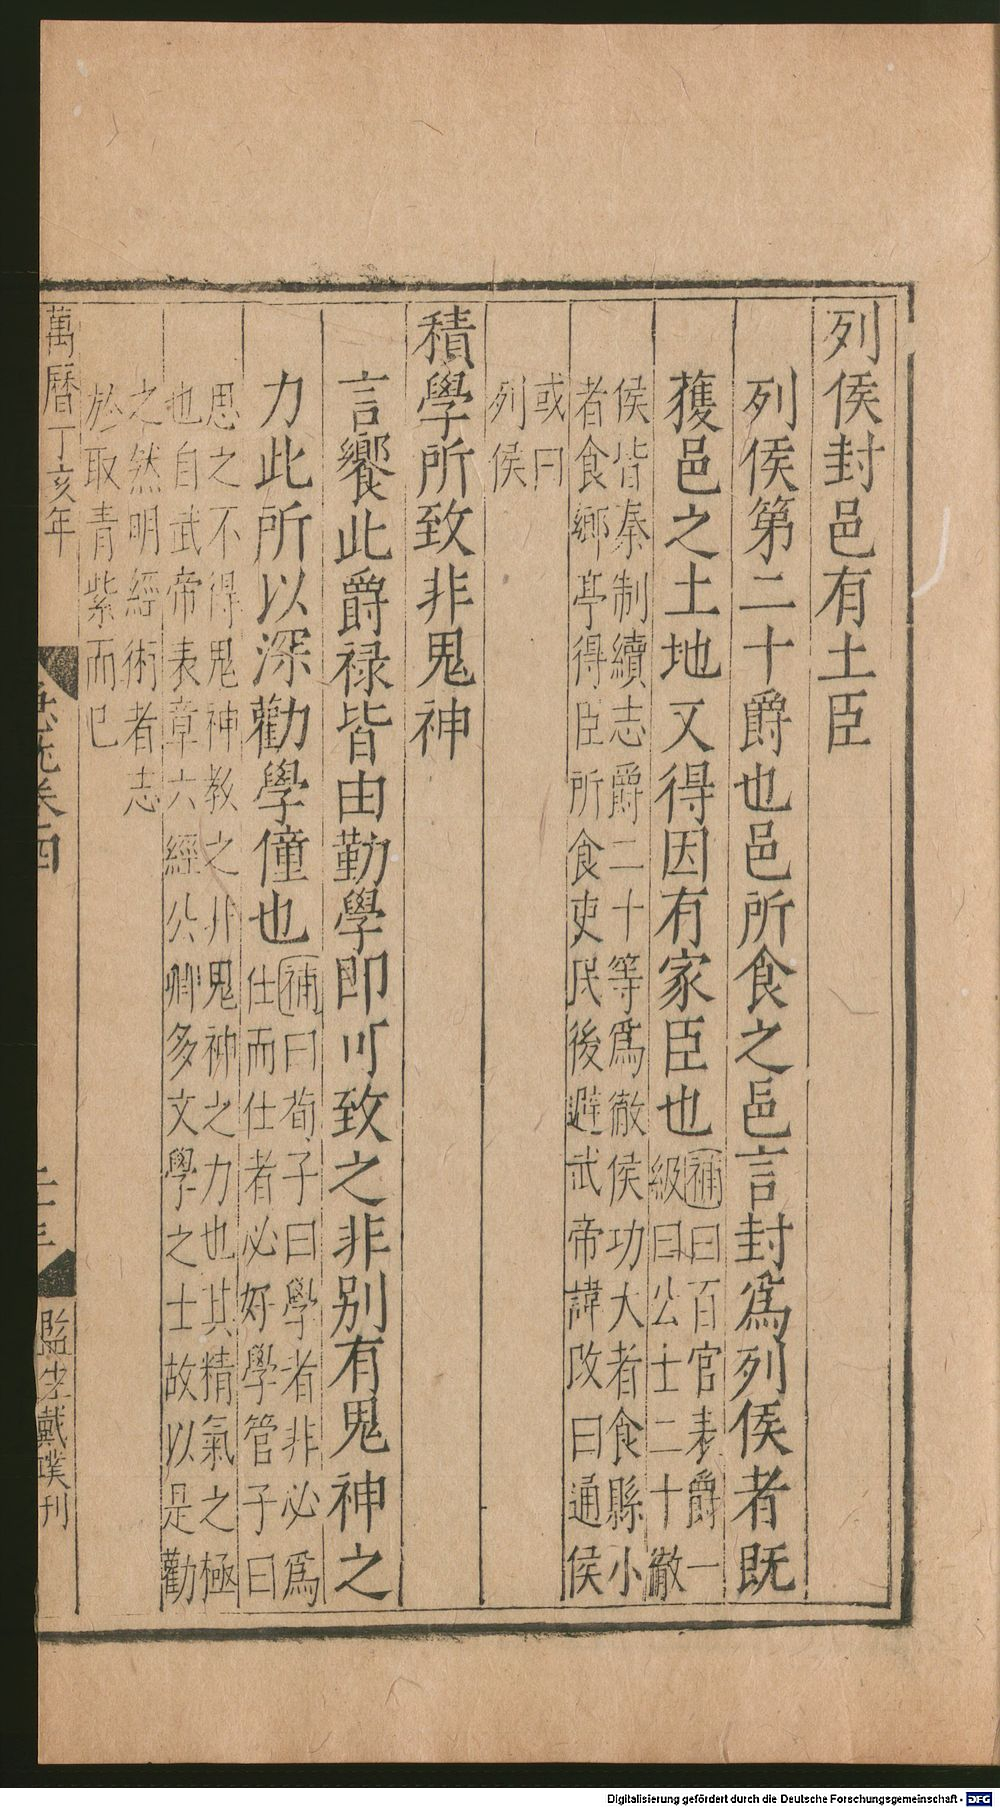 列侯封邑有土臣
列侯第二十爵也邑所食之邑言封爲列侯者既
獲邑之土地又得因有家臣也
補曰百官表爵一
級曰公士二十徹
侯皆秦制續志爵二十等爲徹侯功大者食縣小
者食鄉亭得臣所食吏民後避武帝諱改曰通侯
或曰
列侯
積學所致非鬼神
言饗此爵禄皆由勤學即可致之非别有鬼神之
力此所以深勸學僮也
補曰荀子曰學者非必爲
仕而仕者必好學管子曰
思之不得鬼神教之非鬼神之力也其精氣之極
也自武帝表章六經公卿多文學之士故以是勸
之然明經術者志
於取青紫而已
萬曆丁亥年
卷四
監生戴璞刊
Digitalisierung gefördert durch die Deutsche Forschungsgemeinschaft - DFG